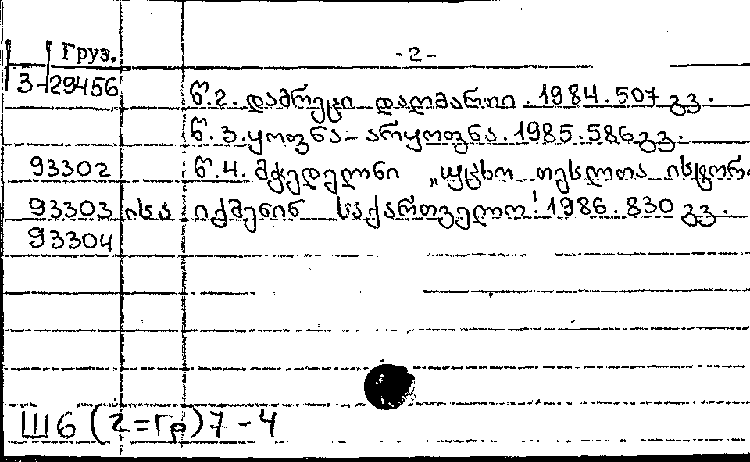 Груз. -2-
3-29456
წ.2. დამრეცი დალმართი. 1984. 507 გვ.
წ. 3. ყოფნა-არყოფნა. 1985. 586 გვ.
93302 წ.4. მჭედელნი „უცხო თესლთა
93303 იქმენინ საქართველო! 1986. 830 გვ.
93304
Ш6 (2=Гр)7-4